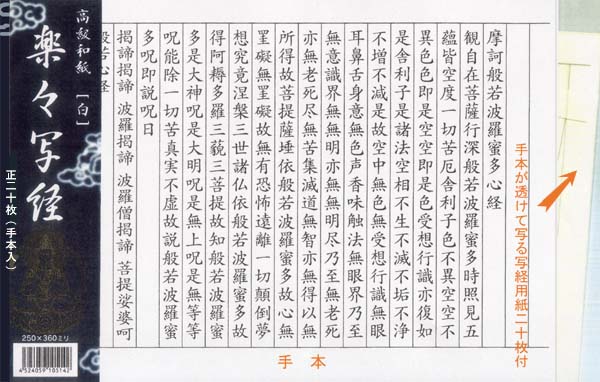 手本が透けて写る写経用紙二十枚付
摩訶般若波羅蜜多心経
観自在菩薩行深般若波羅蜜多時照見五
蘊皆空度一切苦厄舎利子色不異空空不
異色色即是空空即是色受想行識亦復如
是舎利子是諸法空相不生不滅不垢不浄
不増不減是故空中無色無受想行識無眼
耳鼻舌身意無色声香味触法無眼界乃至
無意識界無無明亦無無明尽乃至無老死
亦無老死尽無苦集滅道無智亦無得以無
所得故菩提薩埵依般若波羅蜜多故心無
罣礙無罣礙故無有恐怖遠離一切顛倒夢
想究竟涅槃三世諸仏依般若波羅蜜多故
得阿耨多羅三藐三菩提故知般若波羅蜜
多是大神呪是大明呪是無上呪是無等等
呪能除一切苦真実不虚故説般若波羅蜜
多呪即説呪曰
揭諦揭諦 波羅揭諦 波羅僧揭諦 菩提娑婆呵
般若心経
手本
高級和紙［白］
楽々写経
正二十枚（手本入）
250×360ミリ
4524059103142